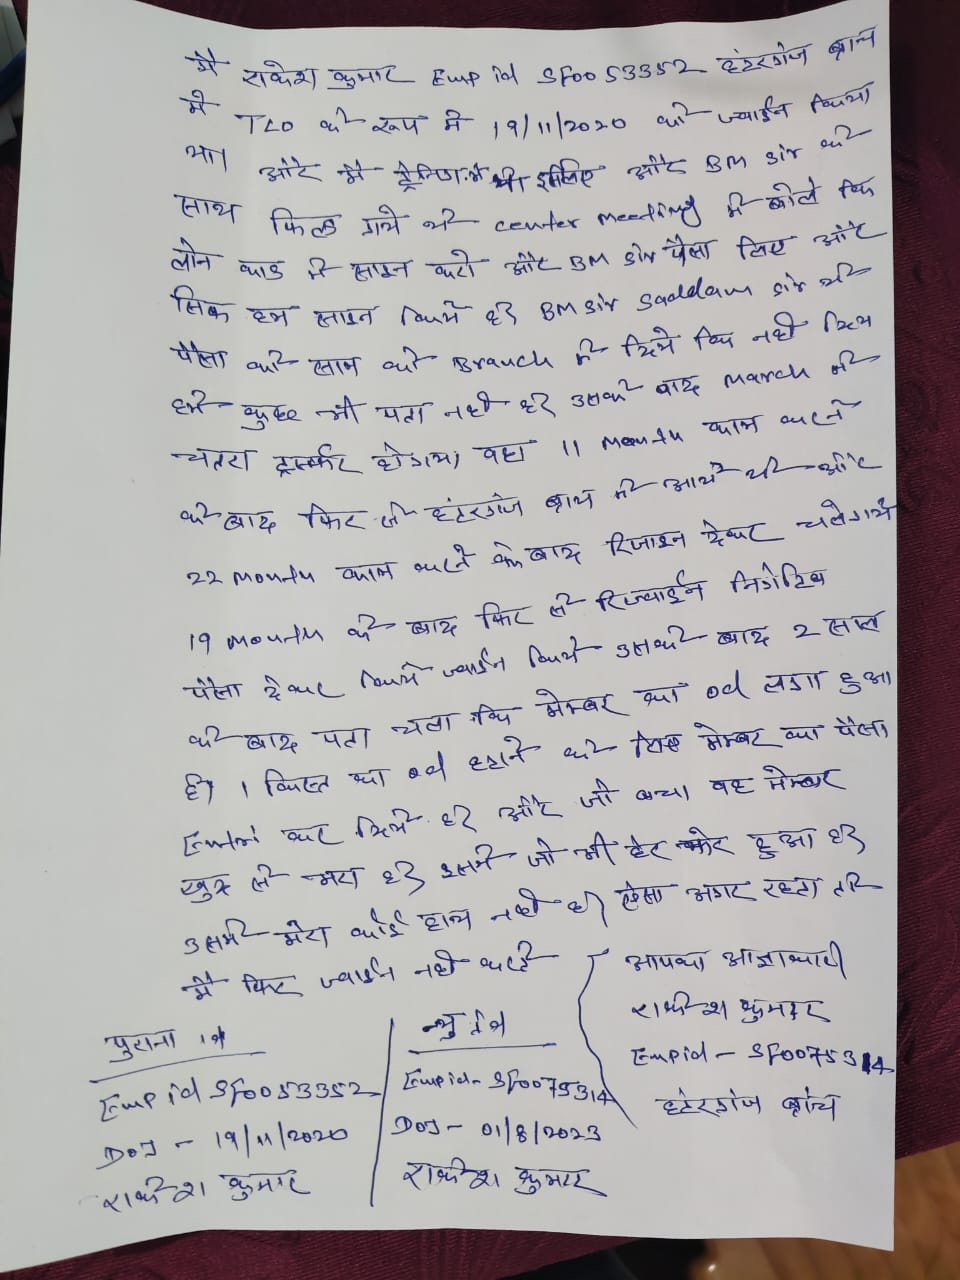 मै राकेश कुमार Emp id SF0053352 हंटरगंज ब्रान्च
मे TLO के रूप मे 19/11/2020 को ज्वाईन किया
था। और मै ट्रेनिंग मे थी इसलिए और BM sir के
साथ फिल्ड गये थे center meeting मे बोले कि
लोन कार्ड मे साइन करो और BM sir पैसा लिए और
सिर्फ हम साइन किये है BM sir Saddam sir थे
पैसा को साम को Branch मे दिये कि नही दिये
हमे कुछ भी पता नही है उसके बाद March मे
चतरा ट्रासर्फर होगया वहा 11 Month काम करने
के बाद फिर से हंटरगंज ब्रान्च मे आये थे और
22 Month काम करने के बाद रिजाइन देकर चलेगये
19 Month के बाद फिर से रिज्वाईन निगेटिव
पैसा देकर किये ज्वाईन किये उसके बाद 2 साल
के बाद पता चला कि मेम्बर का od लगा हुआ
है। 1 किस्त का od हटाने के लिए मेम्बर का पैसा
Emtri कर दिये है और जो बचा वह मेम्बर
खुद से भरा है इसमे जो भी हेर फेर हुआ है
उसमे मेरा कोई हाथ नही है। ऐसा अगर रहता तो
मै फिर ज्वाईन नही करते
आपका आज्ञाकारी
राकेश कुमार
Empid - SF0075314
हंटरगंज ब्रांच
पुराना
Emp id SF0053352
DOJ - 19/11/2020
राकेश कुमार
न्यु
Empid - SF0075314
DOJ - 01/8/2023
राकेश कुमार